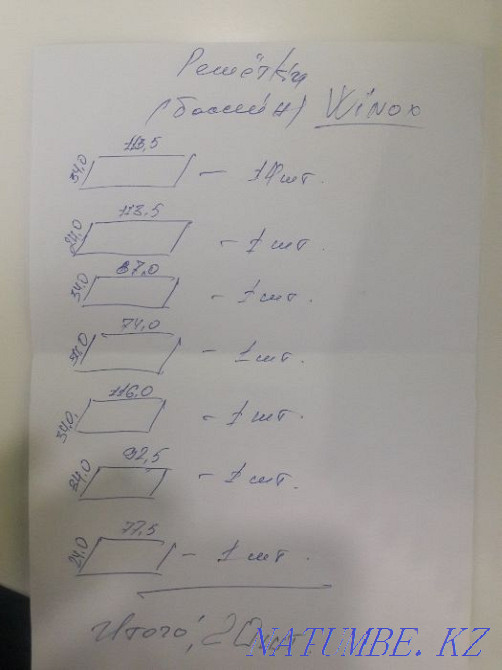 Решётки
(бассейн) Winox
113,5
34,0 - 14 шт.
113,5
- 1 шт.
87,0
34,0 - 1 шт.
74,0
- 1 шт.
116,0
34,0 - 1 шт.
92,5
- 1 шт.
77,5
24,0 - 1 шт.
Итого: 20 шт
NATUMBE.KZ